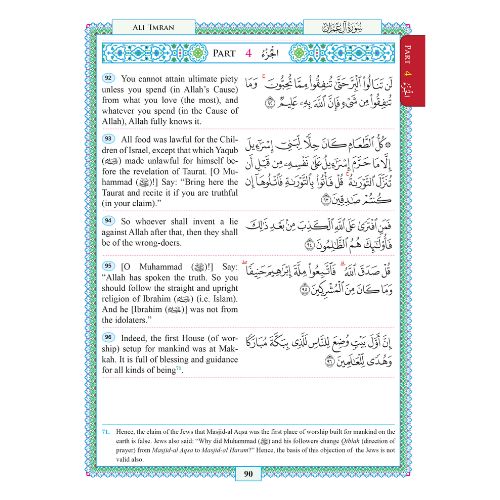 ALI 'IMRAN
سُورَةُ آلِ عِمْرَانَ
PART 4 الجُزْءُ
PART 4 الجُزْءُ
92 You cannot attain ultimate piety
unless you spend (in Allah's Cause)
from what you love (the most), and
whatever you spend (in the Cause of
Allah), Allah fully knows it.
لَن تَنَالُوا۟ ٱلْبِرَّ حَتَّىٰ تُنفِقُوا۟ مِمَّا تُحِبُّونَ ۚ وَمَا
تُنفِقُوا۟ مِن شَىْءٍ فَإِنَّ ٱللَّهَ بِهِۦ عَلِيمٌ ٩٢
93 All food was lawful for the Chil-
dren of Israel, except that which Yaqub
() made unlawful for himself be-
fore the revelation of Taurat. [O Mu-
hammad (ﷺ)!] Say: "Bring here the
Taurat and recite it if you are truthful
(in your claim)."
۞ كُلُّ ٱلطَّعَامِ كَانَ حِلًّا لِّبَنِىٓ إِسْرَٰٓءِيلَ
إِلَّا مَا حَرَّمَ إِسْرَٰٓءِيلُ عَلَىٰ نَفْسِهِۦ مِن قَبْلِ أَن
تُنَزَّلَ ٱلتَّوْرَىٰةُ ۗ قُلْ فَأْتُوا۟ بِٱلتَّوْرَىٰةِ فَٱتْلُوهَآ إِن
كُنتُمْ صَـٰدِقِينَ ٩٣
94 So whoever shall invent a lie
against Allah after that, then they shall
be of the wrong-doers.
فَمَنِ ٱفْتَرَىٰ عَلَى ٱللَّهِ ٱلْكَذِبَ مِنۢ بَعْدِ ذَٰلِكَ
فَأُو۟لَـٰٓئِكَ هُمُ ٱلظَّـٰلِمُونَ ٩٤
95 [O Muhammad (ﷺ)!] Say:
"Allah has spoken the truth. So you
should follow the straight and upright
religion of Ibrahim () (i.e. Islam).
And he [Ibrahim ()] was not from
the idolaters."
قُلْ صَدَقَ ٱللَّهُ ۗ فَٱتَّبِعُوا۟ مِلَّةَ إِبْرَٰهِيمَ حَنِيفًا
وَمَا كَانَ مِنَ ٱلْمُشْرِكِينَ ٩٥
96 Indeed, the first House (of wor-
ship) setup for mankind was at Mak-
kah. It is full of blessing and guidance
for all kinds of being71.
إِنَّ أَوَّلَ بَيْتٍ وُضِعَ لِلنَّاسِ لَلَّذِى بِبَكَّةَ مُبَارَكًا
وَهُدًى لِّلْعَـٰلَمِينَ ٩٦
71. Hence, the claim of the Jews that Masjid-al Aqsa was the first place of worship built for mankind on the
earth is false. Jews also said: "Why did Muhammad (ﷺ) and his followers change Qiblah (direction of
prayer) from Masjid-al Aqsa to Masjid-al Haram?" Hence, the basis of this objection of the Jews is not
valid also.
90